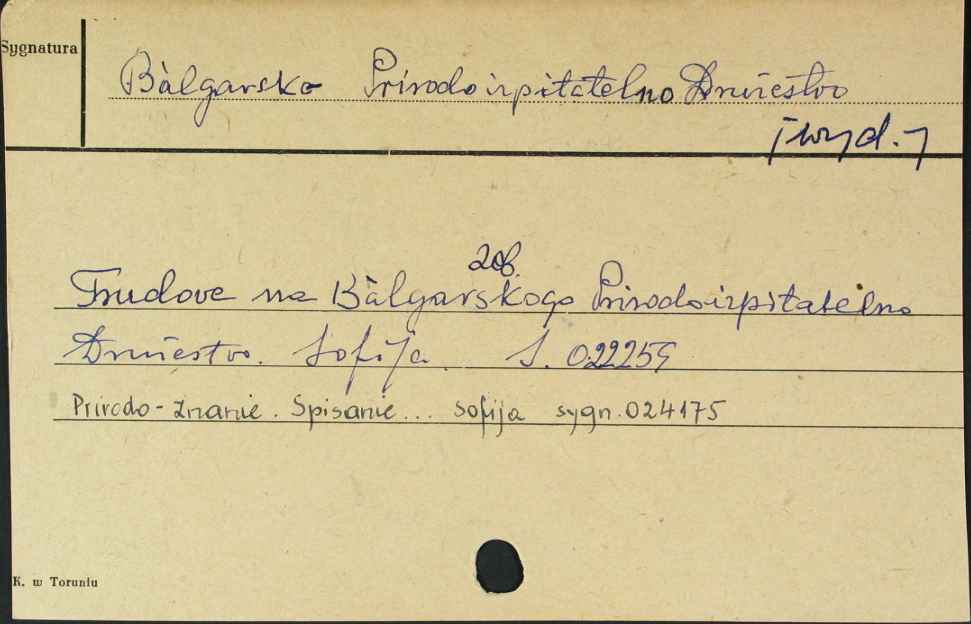 Sygnatura
Bàlgarsko Prirodoizpitatelno Družestvo
[wyd.]
zob.
Trudove na Bàlgarskogo Prirodoizpitatelno
Družestvo. Sofija. S. 022259
Prirodo-znanie. Spisanie... Sofija sygn. 024175
K. w Toruniu